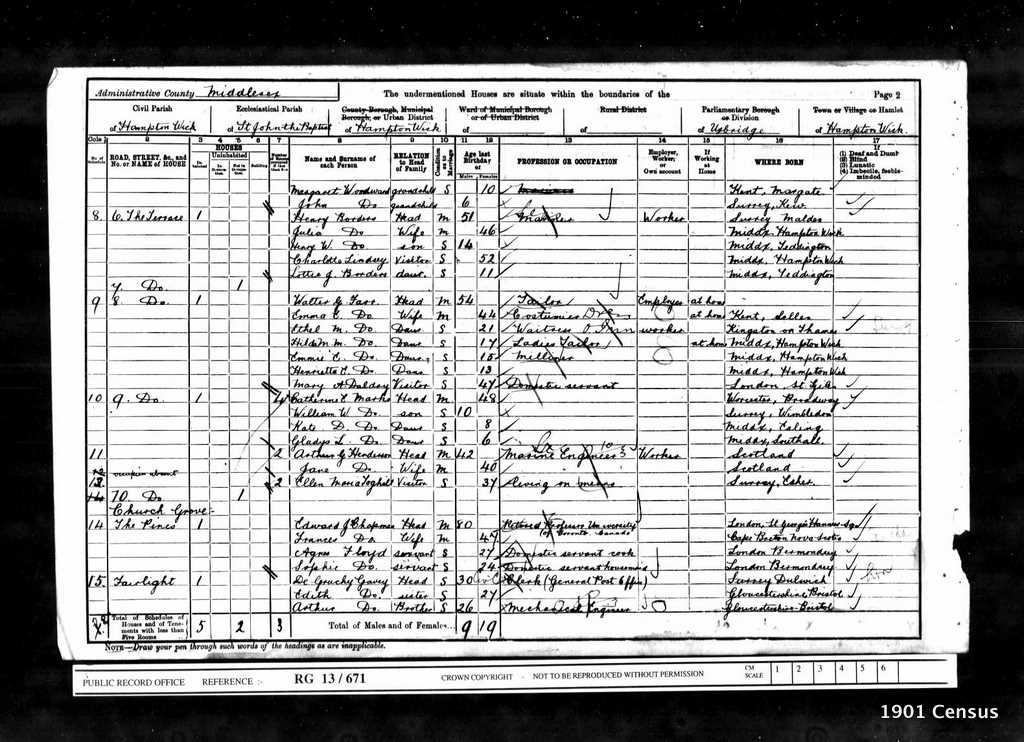 Administrative County Middlesex The undermentioned Houses are situate within the boundaries of the Page 2
Civil Parish Ecclesiastical Parish County Borough, Municipal Borough, or Urban District Ward of Municipal Borough or of Urban District Rural District Parliamentary Borough or Division Town or Village or Hamlet
of Hampton Wick of St John the Baptist of Hampton Wick of of of Uxbridge of Hampton Wick
ROAD, STREET, &c., and No. or NAME of HOUSE HOUSES Uninhabited Name and Surname of each Person RELATION to Head of Family Age last Birthday of Males Females PROFESSION OR OCCUPATION Employer, Worker, or Own account If Working at Home WHERE BORN If (1) Deaf and Dumb (2) Blind (3) Lunatic (4) Imbecile, feeble-minded
Margaret Woodward grandchild S 10 Kent, Margate
John Do grandchild S 6 Surrey, Kew
8. 6. The Terrace 1 Henry Borders Head M 51 Worker Surrey Malden
Julia Do Wife M 46 Middx. Hampton Wick
Henry W. Do. son S 14 Middx, Teddington
Charlotte Lindsey Visitor S 52 Middx, Hampton Wick
Lottie J. Borders daur. S 11 Middx, Teddington
7. Do. 1
9 8. Do. 1 Walter G. Farr. Head M 54 Tailor Employer at home
Emma E. Do. Wife M 44 Costumier at home Kent,
Ethel M. Do Daur S 21 Waitress worker Kingston on Thames
Hilda M. Do. Daur S 17 Ladies Tailor at home Middx, Hampton Wick
Emmie E. Do. Daur. S 15 Milliner Middx, Hampton Wick
Henrietta E. Do. Daur S 13 Middx, Hampton Wick
Mary A Dalday Visitor S 47 Domestic servant London St Giles
10 9. Do. 1 4 Catherine E Marks Head M 48 Worcester, Broadway
William W Do. son S 10 Surrey, Wimbledon
Kate D. Do Daur S 8 Middx, Ealing
Gladys L. Do. Daur S 6 Middx, Southall
11 2 Arthur G Henderson Head M 42 Marine Engineer Worker Scotland
12 occupier absent Jane Do. Wife M 40 Scotland
13 2 Ellen Maria Foghill Visitor S 37 Living on means Surrey, Esher.
14 10. Do 1
Church Grove
14 The Pines 1 Edward J Chapman Head M 80 Retired Professor University of Toronto, Canada London, St Georges Hanover Sq
Frances Do. Wife M 47 Cape Breton Nova Scotia
Agnes Floyd servant S 27 Domestic servant cook London Bermondsey
Sophie Do. servant S 24 Domestic servant housemaid London Bermondsey
15. Fairlight 1 De Gruchy Gavey Head S 30 Clerk (General Post Office) Surrey Dulwich
Edith Do. sister S 27 Gloucestershire Bristol
Arthur Do. Brother S 26 Mechanical Engineer Gloucestershire Bristol
Total of Schedules of Houses and of Tenements with less than Five Rooms 5 2 3 Total of Males and of Females... 9 19
NOTE—Draw your pen through such words of the headings as are inapplicable.
PUBLIC RECORD OFFICE REFERENCE :- RG 13/671 CROWN COPYRIGHT - NOT TO BE REPRODUCED WITHOUT PERMISSION CM SCALE 1 2 3 4 5 6
1901 Census